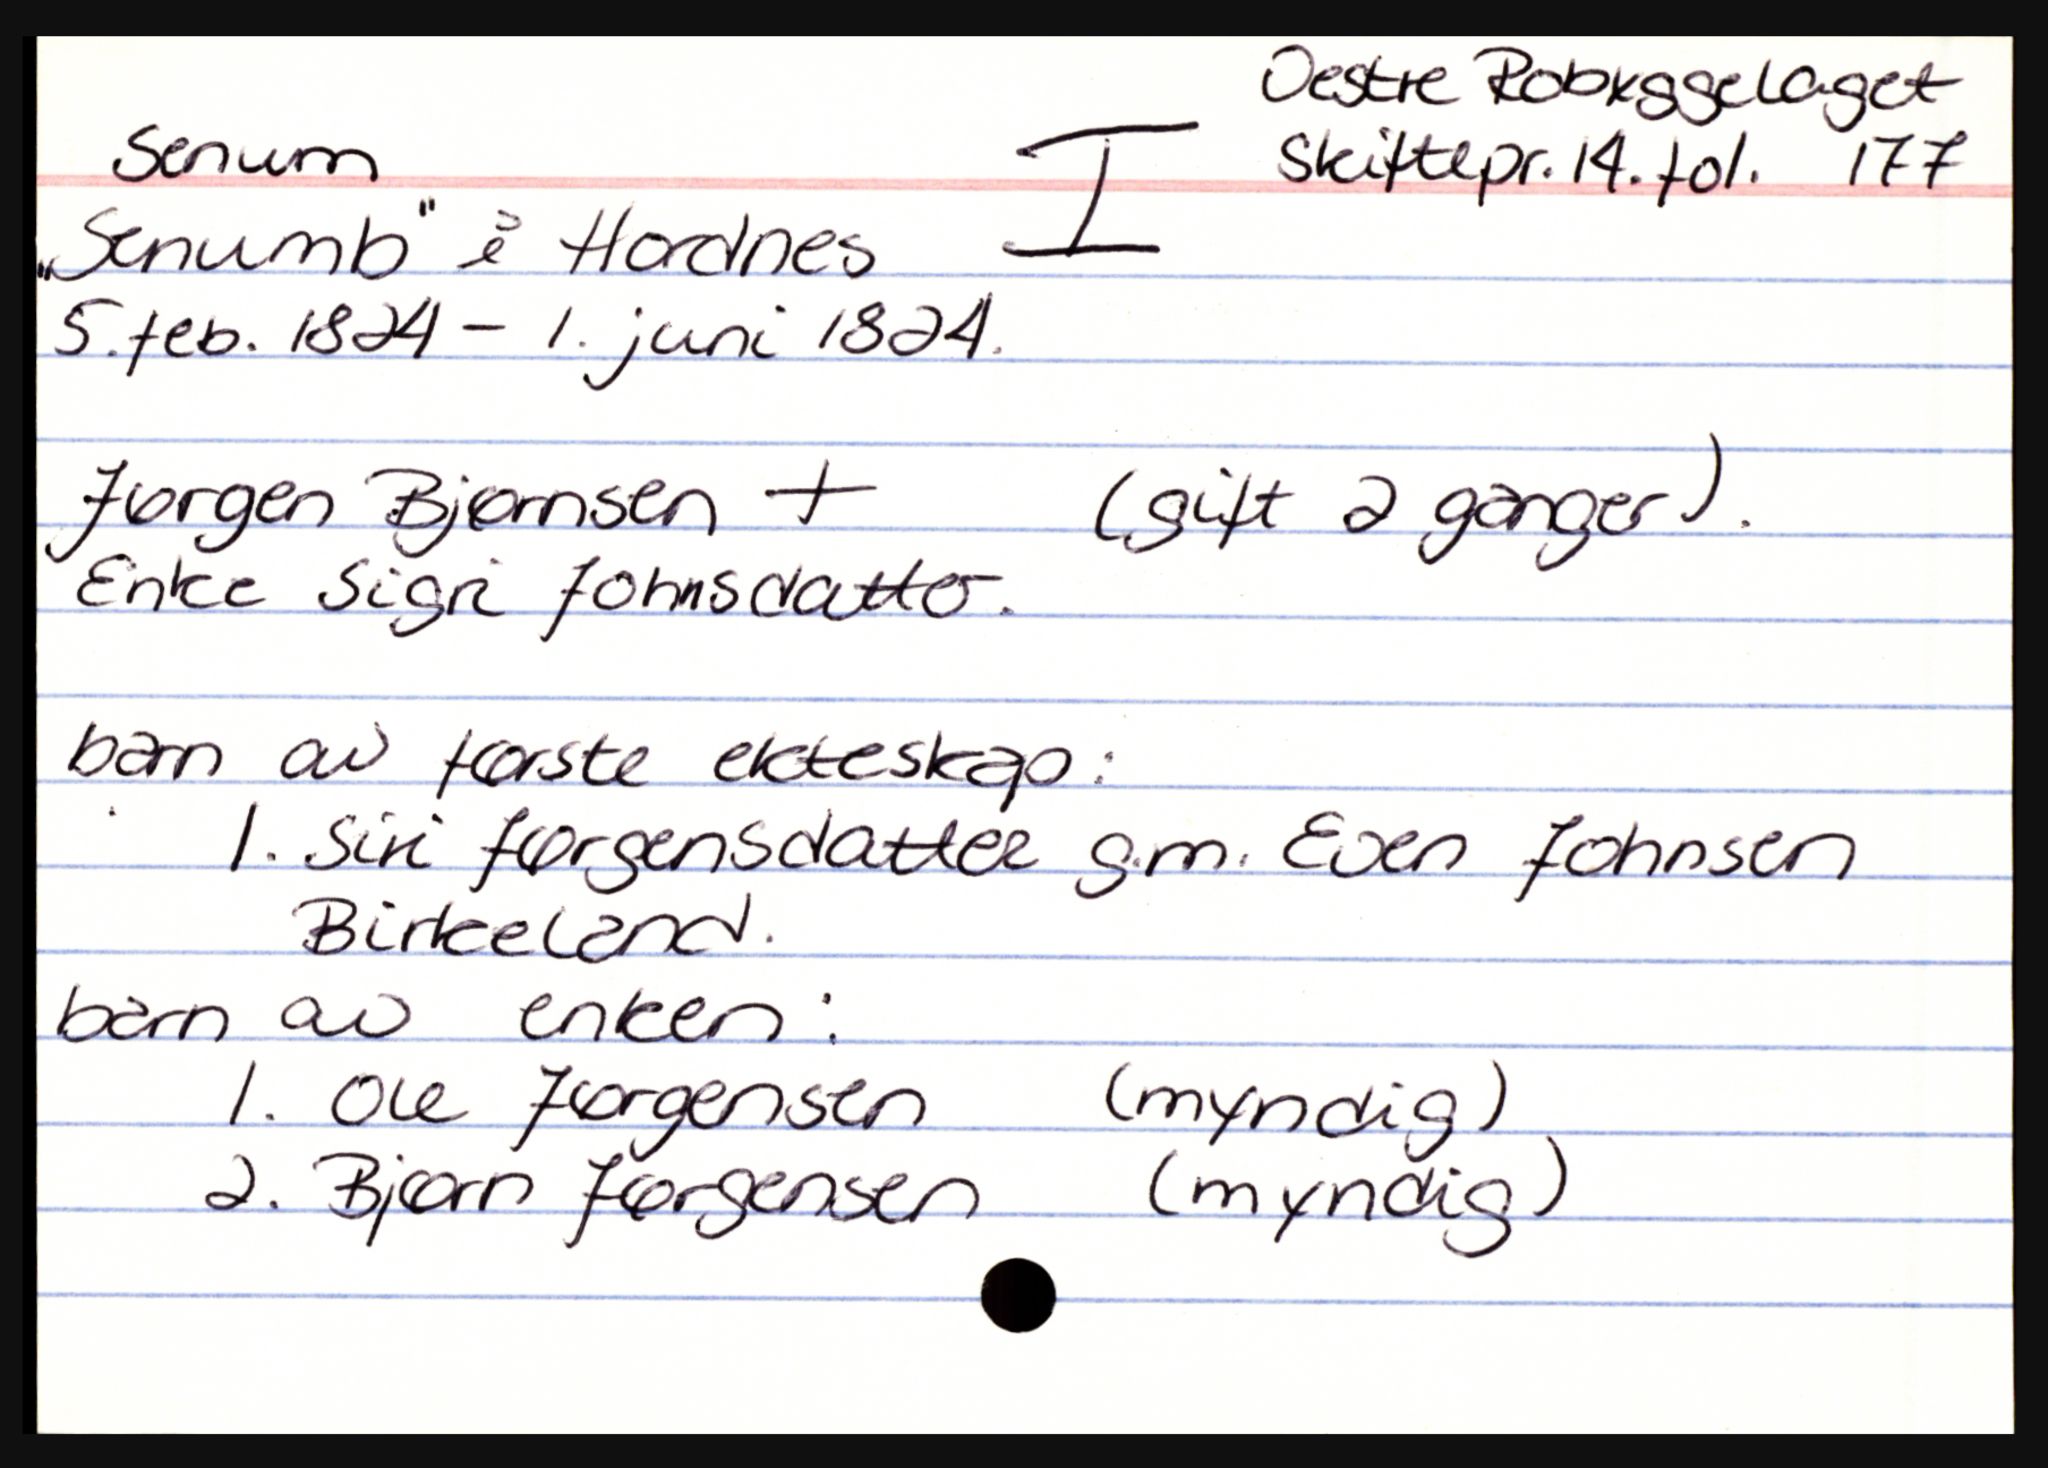 Oestre Robyggelaget
Senum I Skiftepr. 14. fol. 177
„Senumb" i Hordnes
5. feb. 1824 - 1. juni 1824.
Jørgen Bjørnsen + (gift 2 ganger).
Enke Sigri Johnsdatter.
barn av første ekteskap:
1. Siri Jørgensdatter g.m. Even Johnsen
Birkeland.
barn av enken:
1. Ole Jørgensen (myndig)
2. Bjørn Jørgensen (myndig)